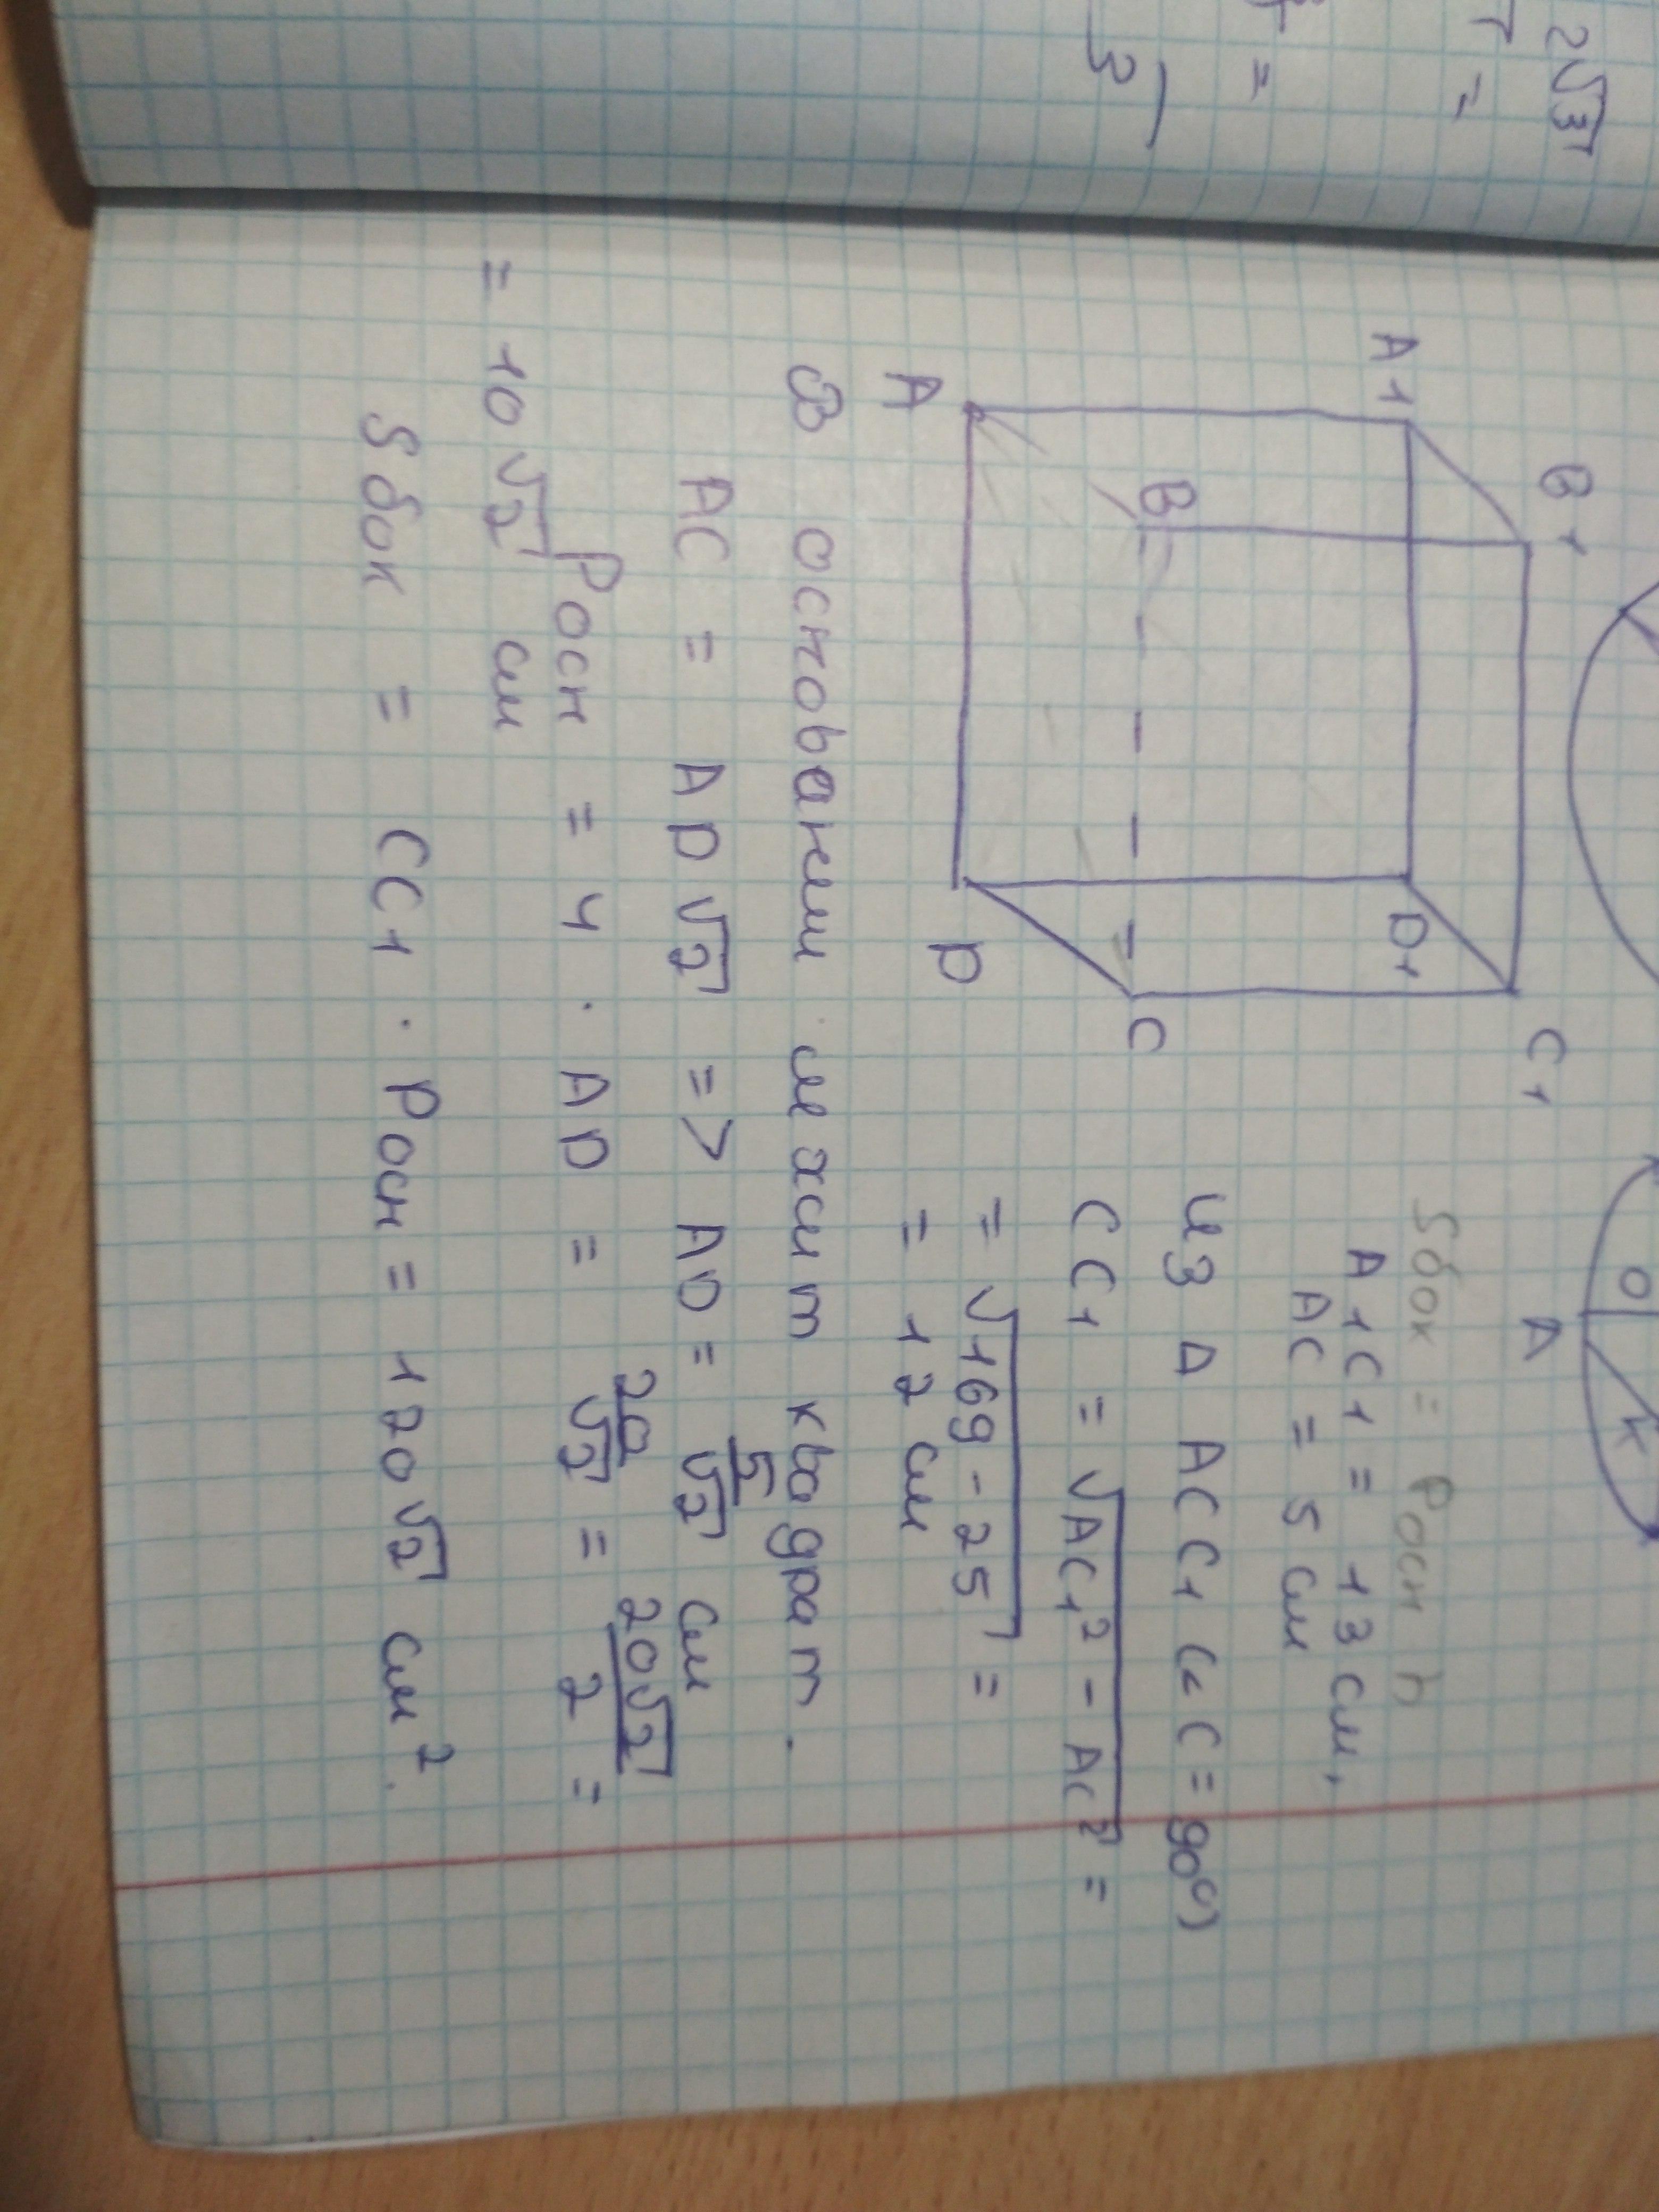 2√3
r =
=
3
O
A
K
A1
B1
C1
D1
B
C
A
D
Sбок = Pосн h
A1C1 = 13 см,
AC = 5 см
из Δ ACC1 (∠C = 90°)
CC1 = √AC1² - AC² =
= √169 - 25 =
= 12 см
В основании лежит квадрат.
AC = AD√2 => AD = 5/√2 см
Pосн = 4 · AD = 20/√2 = 20√2/2 =
= 10√2 см
Sбок = CC1 · Pосн = 120√2 см².